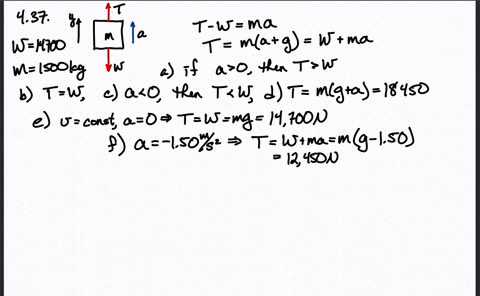 4.37. y T T-W = ma
W=14700 m a T = m(a+g) = W + ma
m=1500kg W a) if a>0, then T>W
b) T=W, c) a<0, then T<W, d) T= m(g+a)=18450
e) v=const, a=0 ⇒ T=W=mg=14,700N
f) a=-1.50 m/s² ⇒ T=W+ma=m(g-1.50)
=12,450N